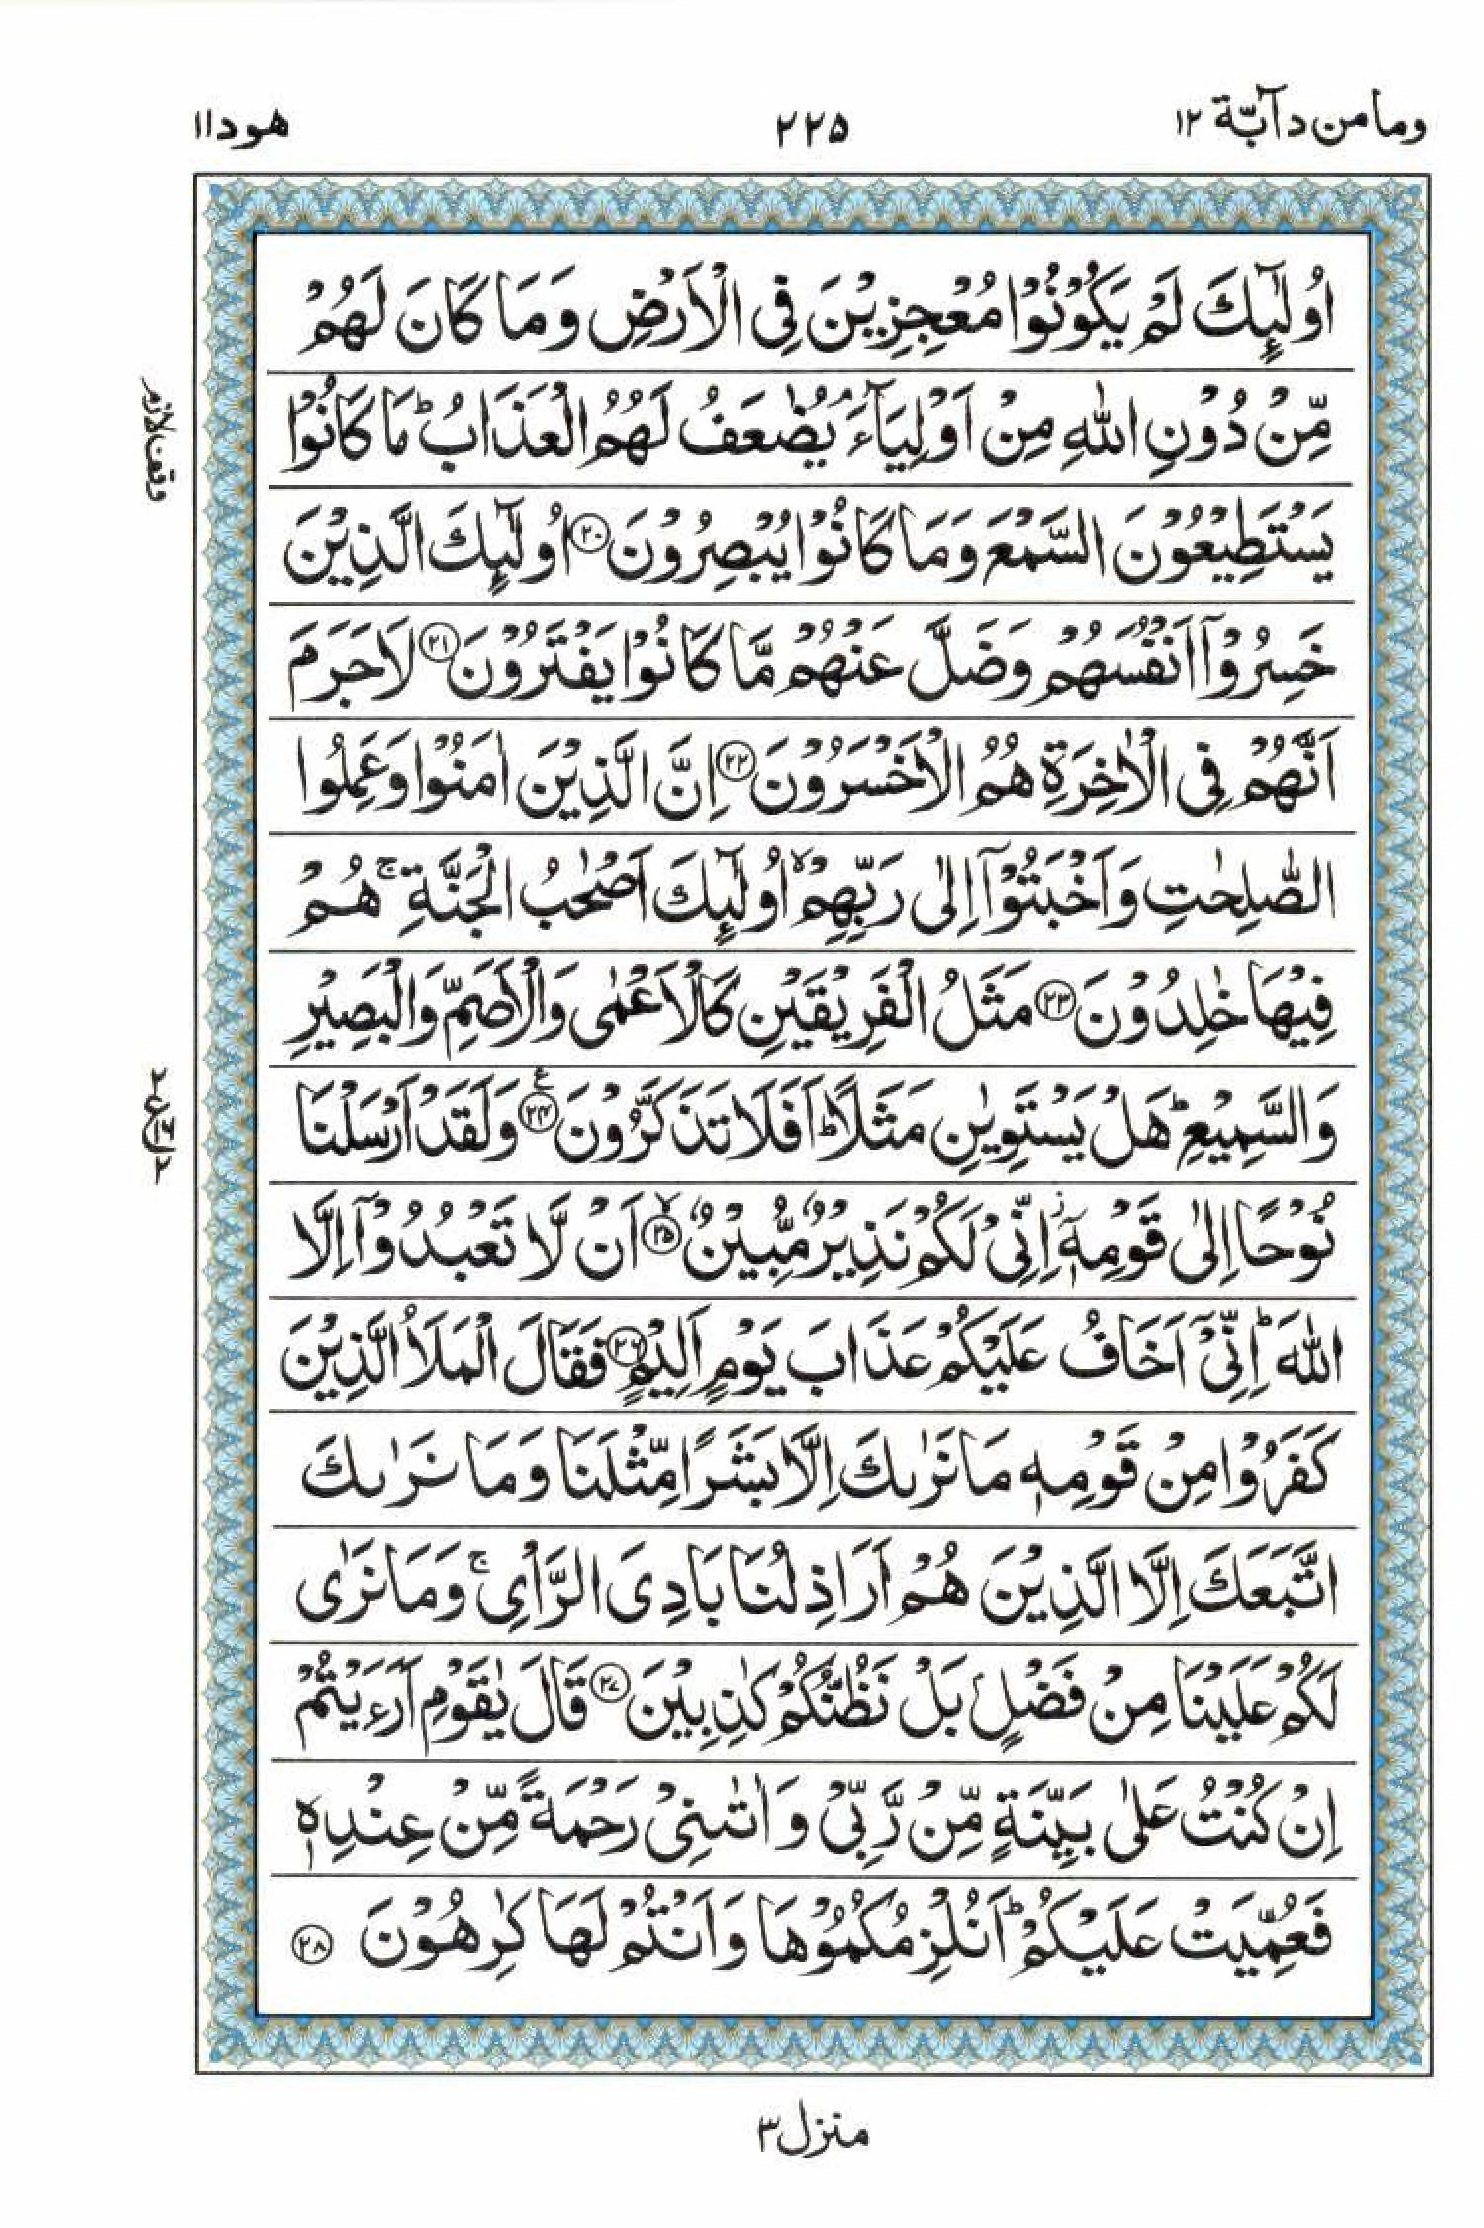 وما من دآبّة ١٢
٢٢٥
هود ١١
اُولٰٓئِكَ لَمْ يَكُوْنُوْا مُعْجِزِيْنَ فِى الْاَرْضِ وَمَا كَانَ لَهُمْ
مِّنْ دُوْنِ اللّٰهِ مِنْ اَوْلِيَآءَ ۘ يُضٰعَفُ لَهُمُ الْعَذَابُ ؕ مَا كَانُوْا
وقف لازم
يَسْتَطِيْعُوْنَ السَّمْعَ وَمَا كَانُوْا يُبْصِرُوْنَ ۝٢٠ اُولٰٓئِكَ الَّذِيْنَ
خَسِرُوْٓا اَنْفُسَهُمْ وَضَلَّ عَنْهُمْ مَّا كَانُوْا يَفْتَرُوْنَ ۝٢١ لَا جَرَمَ
اَنَّهُمْ فِى الْاٰخِرَةِ هُمُ الْاَخْسَرُوْنَ ۝٢٢ اِنَّ الَّذِيْنَ اٰمَنُوْا وَعَمِلُوا
الصّٰلِحٰتِ وَاَخْبَتُوْٓا اِلٰى رَبِّهِمْ ۙ اُولٰٓئِكَ اَصْحٰبُ الْجَنَّةِ ۚ هُمْ
فِيْهَا خٰلِدُوْنَ ۝٢٣ مَثَلُ الْفَرِيْقَيْنِ كَالْاَعْمٰى وَالْاَصَمِّ وَالْبَصِيْرِ
وَالسَّمِيْعِ ؕ هَلْ يَسْتَوِيٰنِ مَثَلًا ؕ اَفَلَا تَذَكَّرُوْنَ ۝٢٤ ع وَلَقَدْ اَرْسَلْنَا
نُوْحًا اِلٰى قَوْمِهٖٓ ز اِنِّىْ لَكُمْ نَذِيْرٌ مُّبِيْنٌ ۝٢٥ ۙ اَنْ لَّا تَعْبُدُوْٓا اِلَّا
اللّٰهَ ؕ اِنِّىْٓ اَخَافُ عَلَيْكُمْ عَذَابَ يَوْمٍ اَلِيْمٍ ۝٢٦ فَقَالَ الْمَلَاُ الَّذِيْنَ
كَفَرُوْا مِنْ قَوْمِهٖ مَا نَرٰىكَ اِلَّا بَشَرًا مِّثْلَنَا وَمَا نَرٰىكَ
اتَّبَعَكَ اِلَّا الَّذِيْنَ هُمْ اَرَاذِلُنَا بَادِىَ الرَّاْىِ ۚ وَمَا نَرٰى
لَكُمْ عَلَيْنَا مِنْ فَضْلٍۢ بَلْ نَظُنُّكُمْ كٰذِبِيْنَ ۝٢٧ قَالَ يٰقَوْمِ اَرَءَيْتُمْ
اِنْ كُنْتُ عَلٰى بَيِّنَةٍ مِّنْ رَّبِّىْ وَاٰتٰىنِىْ رَحْمَةً مِّنْ عِنْدِهٖ
فَعُمِّيَتْ عَلَيْكُمْ ؕ اَنُلْزِمُكُمُوْهَا وَاَنْتُمْ لَهَا كٰرِهُوْنَ ۝٢٨
منزل ٣